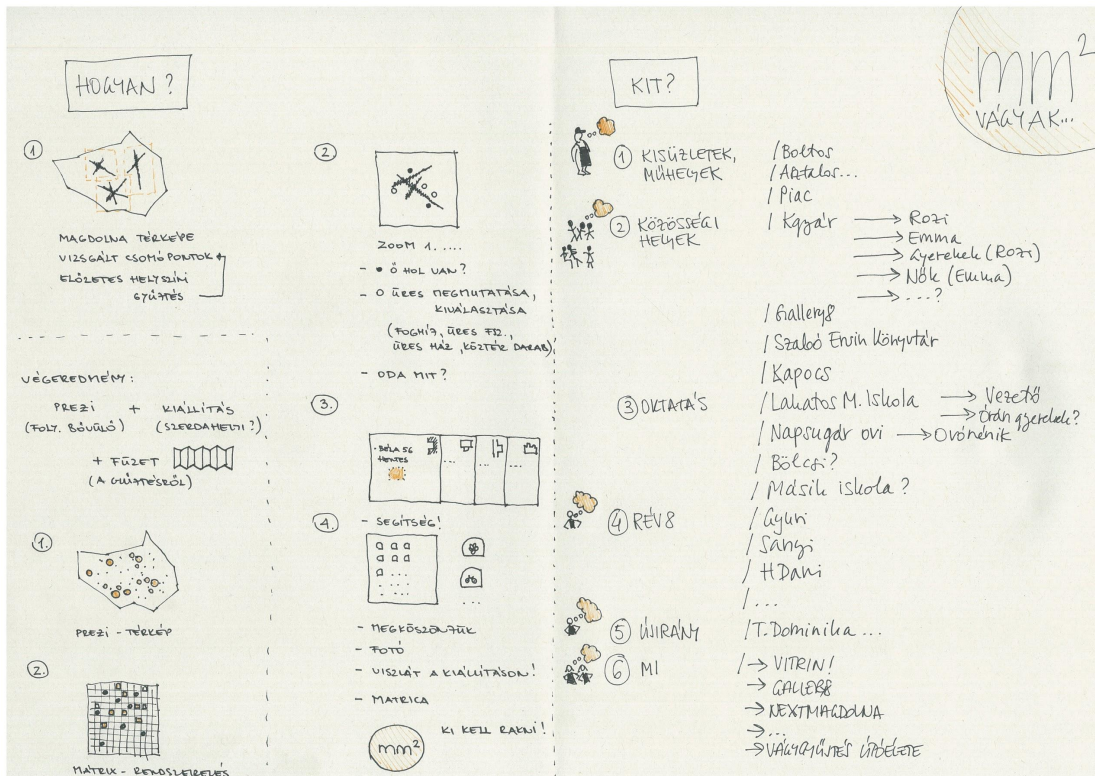 HOGYAN?
1
MAGDOLNA TÉRKÉPE
VIZSGÁLT CSOMÓPONTOK
ELŐZETES HELYSZÍNI
GYŰJTÉS
VÉGEREDMÉNY:
PREZI + KIÁLLÍTÁS
(FOLY. BŐVÜLŐ) (SZERDAHELYI?)
+ FÜZET
(A GYŰJTÉSRŐL)
1.
PREZI - TÉRKÉP
2.
MÁTRIX - RENDSZEREZÉS
2
ZOOM 1. ....
- • Ő HOL VAN?
- O ÜRES MEGMUTATÁSA,
KIVÁLASZTÁSA
(FOGHÍJ, ÜRES FSZ.,
ÜRES HÁZ, KÖZTÉR DARAB)
- ODA MIT?
3.
• BÉLA 56
HENTES
...
...
...
4.
- SEGÍTSÉG!
...
- MEGKÖSZÖNJÜK
- FOTÓ
- VISZLÁT A KIÁLLÍTÁSON!
- MATRICA
KI KELL RAKNI!
mm²
KIT?
1 KISÜZLETEK,
MŰHELYEK
/ Boltos
/ Asztalos...
/ Piac
2 KÖZÖSSÉGI
HELYEK
/ Kgyár → Rozi
→ Emma
→ Gyerekek (Rozi)
→ Nők (Emma)
→ ...?
/ Gallery8
/ Szabó Ervin Könyvtár
/ Kapocs
3 OKTATÁS
/ Lakatos M. Iskola → Vezető
→ Órán gyerekek?
/ Napsugár ovi → Óvónénik
/ Bölcsi?
/ Másik iskola?
4 RÉV8
/ Gyuri
/ Sanyi
/ H Dani
/ ...
5 ÚJIRÁNY
/ T. Dominika ...
6 MI
/ → VITRIN!
→ GALLER8
→ NEXTMAGDOLNA
→ ...
→ VÁGYGYŰJTÉS UTÓÉLETE
mm²
VÁGYAK...